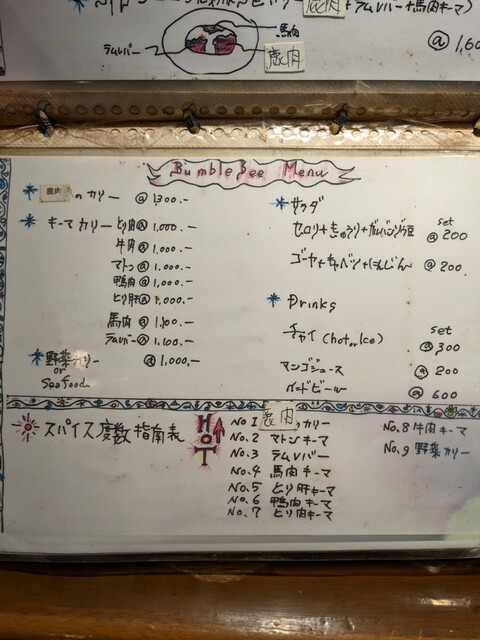 鹿肉 +ラムレバー+馬肉キーマ)
馬肉
ラムレバー
鹿肉
@ 1,60
BumbleBee Menu
* 鹿肉のカリー @ 1,300.-
* キーマカリー とり肉 @ 1,000.-
牛肉 @ 1,000.-
マトン @ 1,000.-
鴨肉 @ 1,000.-
とり肝 @ 1,000.-
馬肉 @ 1,100.-
ラムレバー @ 1,100.-
* 野菜カリー @ 1,000,-
or
Seafood
* サラダ
set
セロリ+きゅうり+ガルバンゾウ豆 @ 200
ゴーヤ+キャベツ+にんじん @ 200.
* Drinks
set
チャイ (hot or Ice) @ 300
マンゴジュース @ 200
バードビール @ 600
スパイス度数指南表
HOT
No 1 鹿肉カリー
No. 2 マトンキーマ
No. 3 ラムレバー
No. 4 馬肉キーマ
No. 5 とり肝キーマ
No. 6 鴨肉キーマ
No. 7 とり肉キーマ
No. 8 牛肉キーマ
No. 9 野菜カリー